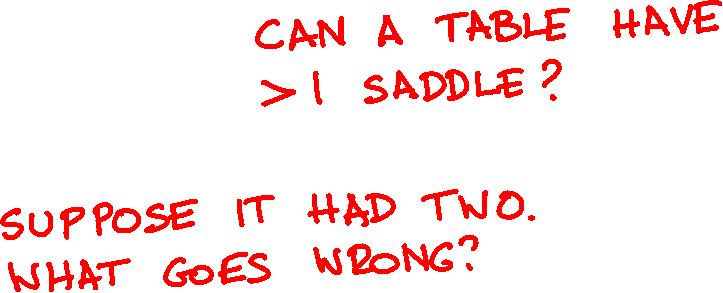 CAN A TABLE HAVE
>1 SADDLE?
SUPPOSE IT HAD TWO.
WHAT GOES WRONG?